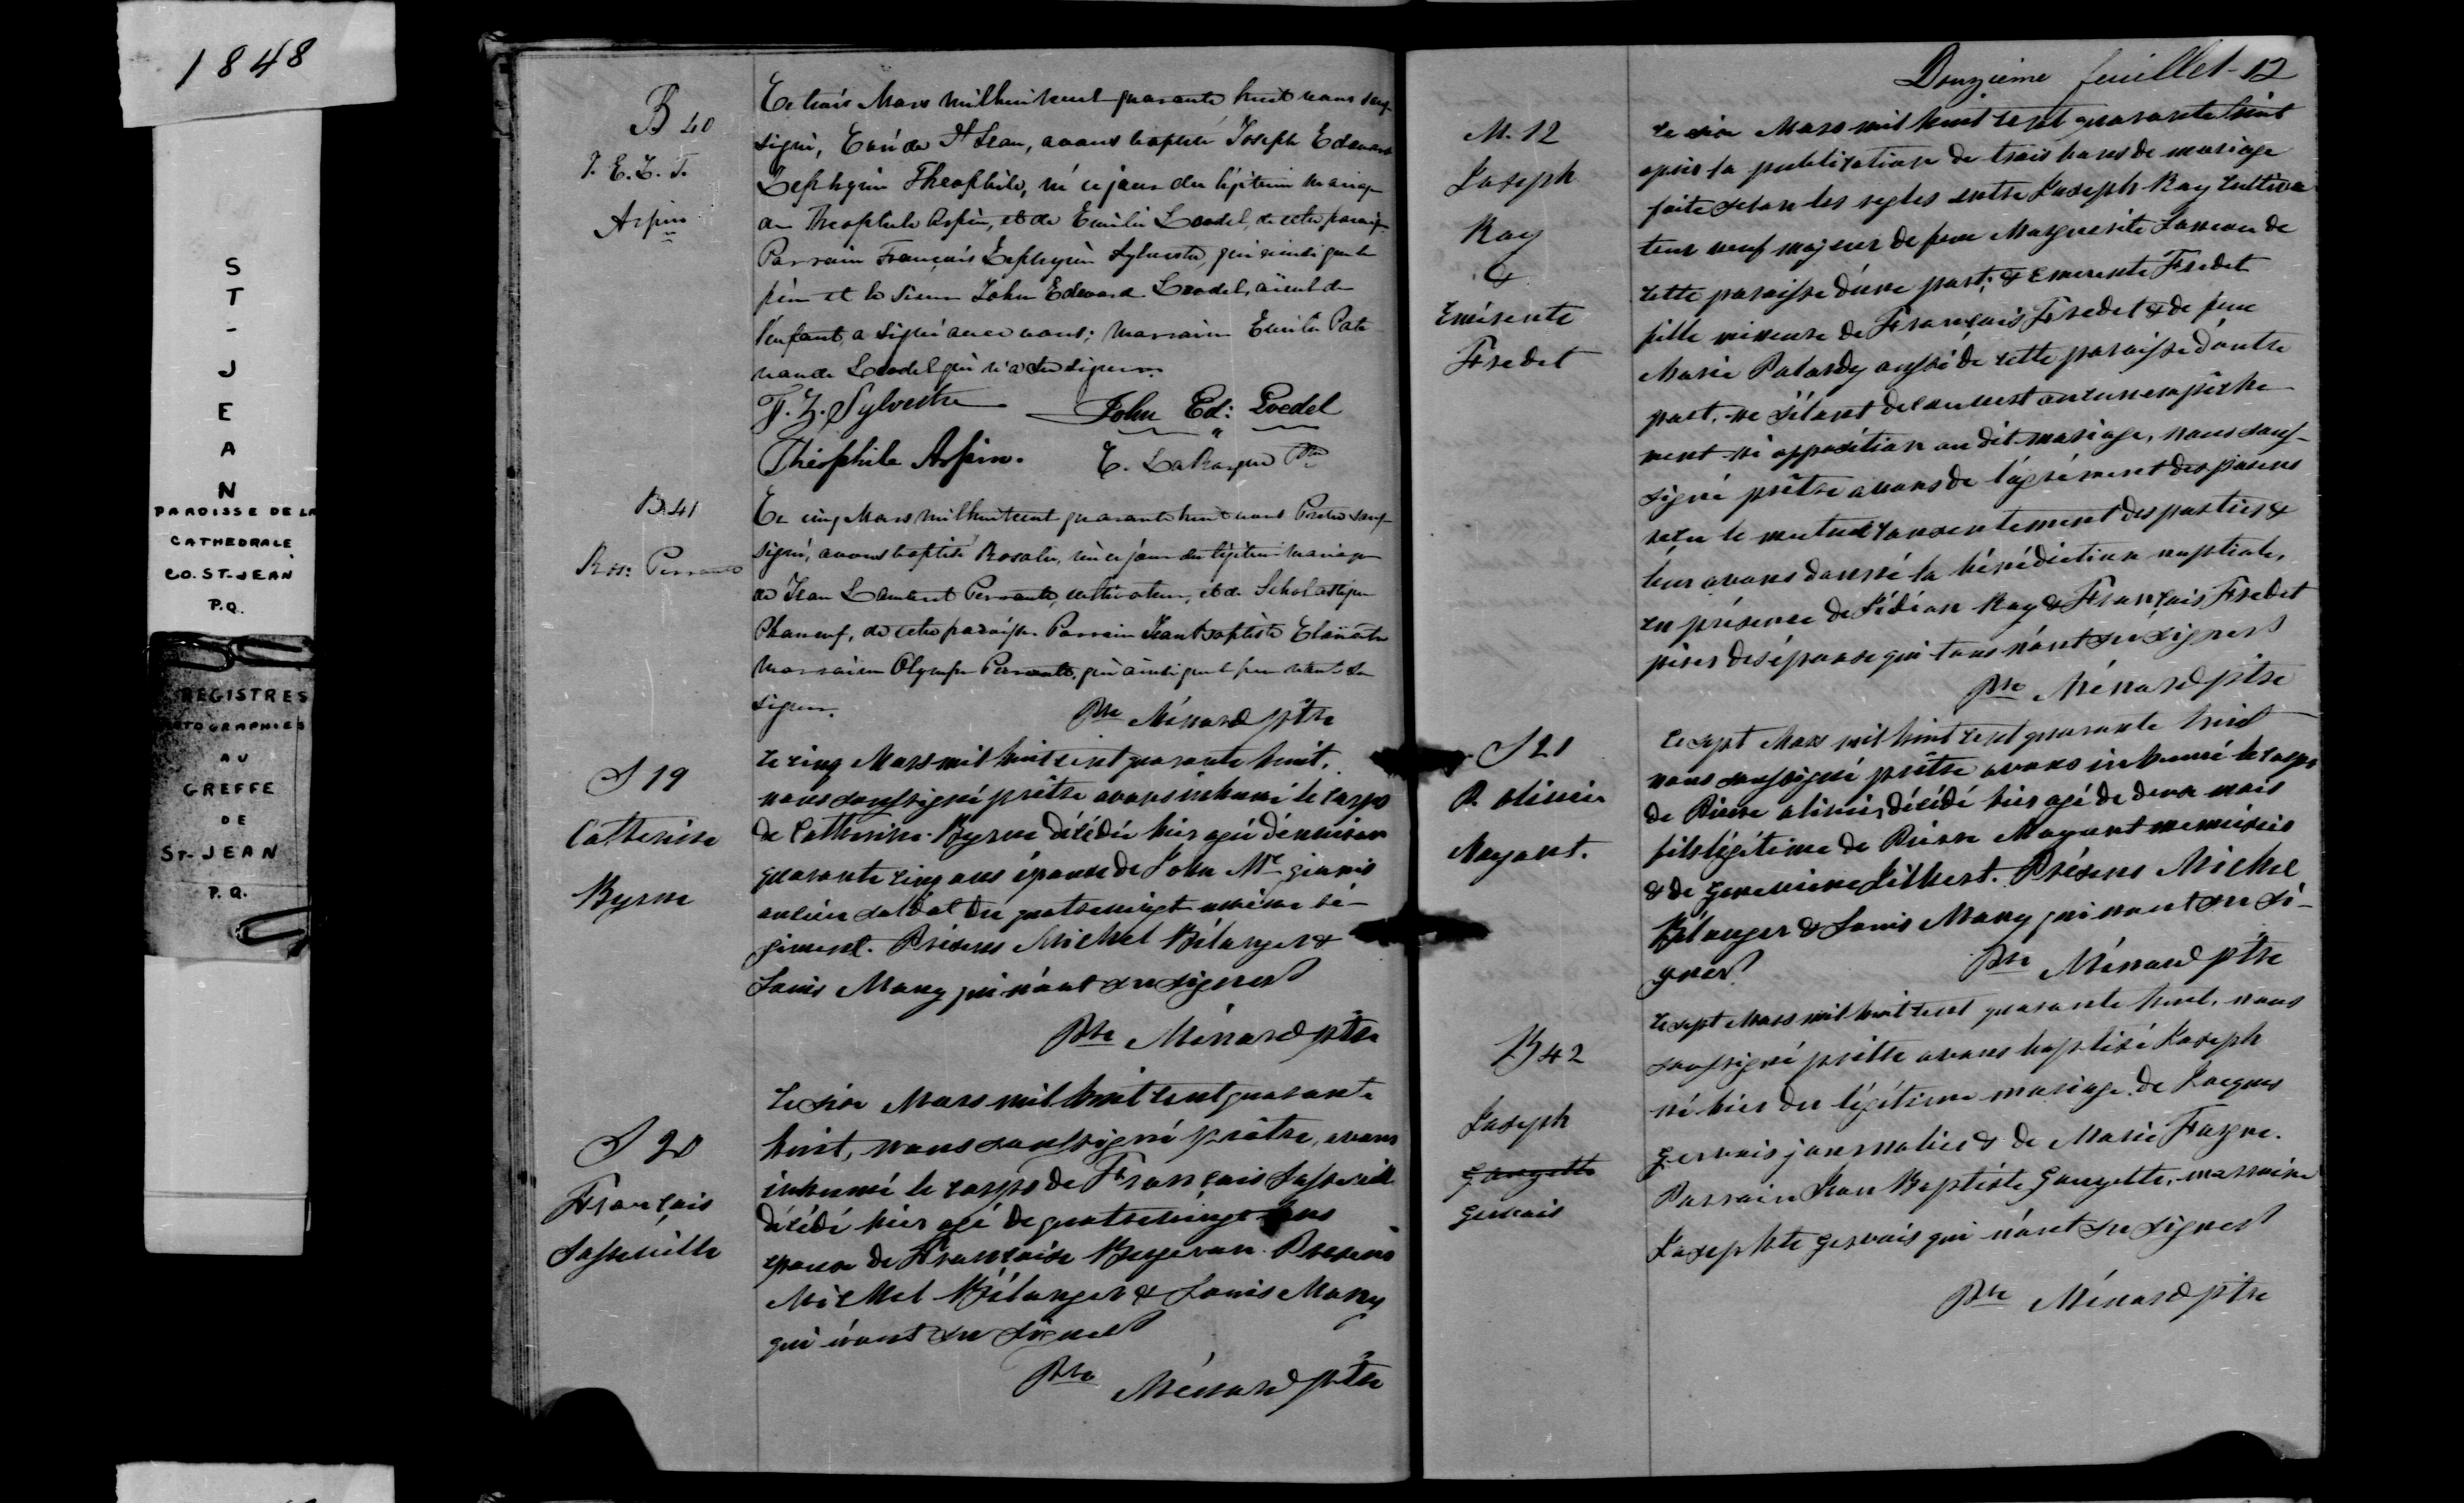 1848
ST-JEAN
PAROISSE DE LA
CATHEDRALE
CO. ST-JEAN
P.Q.
REGISTRES
PHOTOGRAPHIES
AU
GREFFE
DE
ST-JEAN
P.Q.
B 40
J. E. Z. T.
Arpin
Le trois Mars mil huit cent quarante huit nous sous-
signé, Curé de St Jean, avons baptisé Joseph Edouard
Zephyrin Theophile, né ce jour du légitime mariage
de Theophile Arpin, et de Emilie Loedel, de cette paroisse
Parrain François Zephyrin Sylvestre, qui ainsi que le
père et le Sieur John Edward Loedel, aieul de
l'enfant, a signé avec nous; Marraine Emilie
Loedel qui n'a su signer.
F. Z. Sylvestre John Ed: Loedel
Théophile Arpin. C. LaRocque Ptre
B 41
Ros: Perrault
Le cinq Mars mil huit cent quarante huit nous Prêtre sous-
signé, avons baptisé Rosalie, née ce jour du légitime mariage
de Jean Lambert Perrault, cultivateur, et de Scholastique
Phaneuf, de cette paroisse. Parrain Jean Baptiste
Marraine Olympe Perrault, qui ainsi que le père n'ont su
signer.
Pre Ménard ptre
S 19
Catherine
Byrne
Le cinq Mars mil huit cent quarante huit,
nous soussigné prêtre avons inhumé le corps
de Catherine Byrne décédée hier agée d'environ
quarante cinq ans épouse de John Mc ginnis
ancien soldat du quatrevingt unième ré-
giment. Présens Michel Bélanger &
Louis Many qui n'ont su signer
Pre Ménard ptre
S 20
François
Lasseville
Le six Mars mil huit cent quarante
huit, nous soussigné prêtre, avons
inhumé le corps de François Lasseville
décédé hier agé de quatrevingt ans
epoux de Françoise Bergevin. Presens
Michel Bélanger & Louis Many
qui n'ont su signer
Pre Ménard ptre
Douzième feuillet - 12
M. 12
Joseph
Roy
&
Emérente
Fredet
Le six Mars mil huit cent quarante huit
après la publication de trois bans de mariage
faite selon les regles entre Joseph Roy cultiva
teur veuf majeur de feue Marguerite de
cette paroisse d'une part; & Emerente Fredet
fille mineure de François Fredet & de feue
Marie Patardy aussi de cette paroisse d'autre
part, ne s'étant découvert aucun empêche
ment ni opposition au dit mariage, nous sous-
signé prêtre avons de l'agrément des parens
recu le mutuel consentement des parties &
leur avons donné la bénédiction nuptiale,
en présence de Gédéon Roy & François Fredet
père de l'épouse qui tous n'ont su signer
Pre Ménard ptre
S 21
P. olivier
Mayant.
Le sept Mars mil huit cent quarante huit
nous soussigné prêtre avons inhumé le corps
de Pierre olivier décédé hier agé de deux mois
fils légitime de Pierre Mayant menuisier
& de genevieve Gilbert. Présens Michel
Bélanger & Louis Many qui n'ont su si-
gner
Pre Ménard ptre
B 42
Joseph
Goyette
gervais
Le sept Mars mil huit cent quarante huit, nous
soussigné prêtre avons baptisé Joseph
né hier du légitime mariage de Jacques
gervais journalier & de Marie Fargue.
Parrain Jean Baptiste Gouyette, marraine
Josephte gervais qui n'ont su signer
Pre Ménard ptre